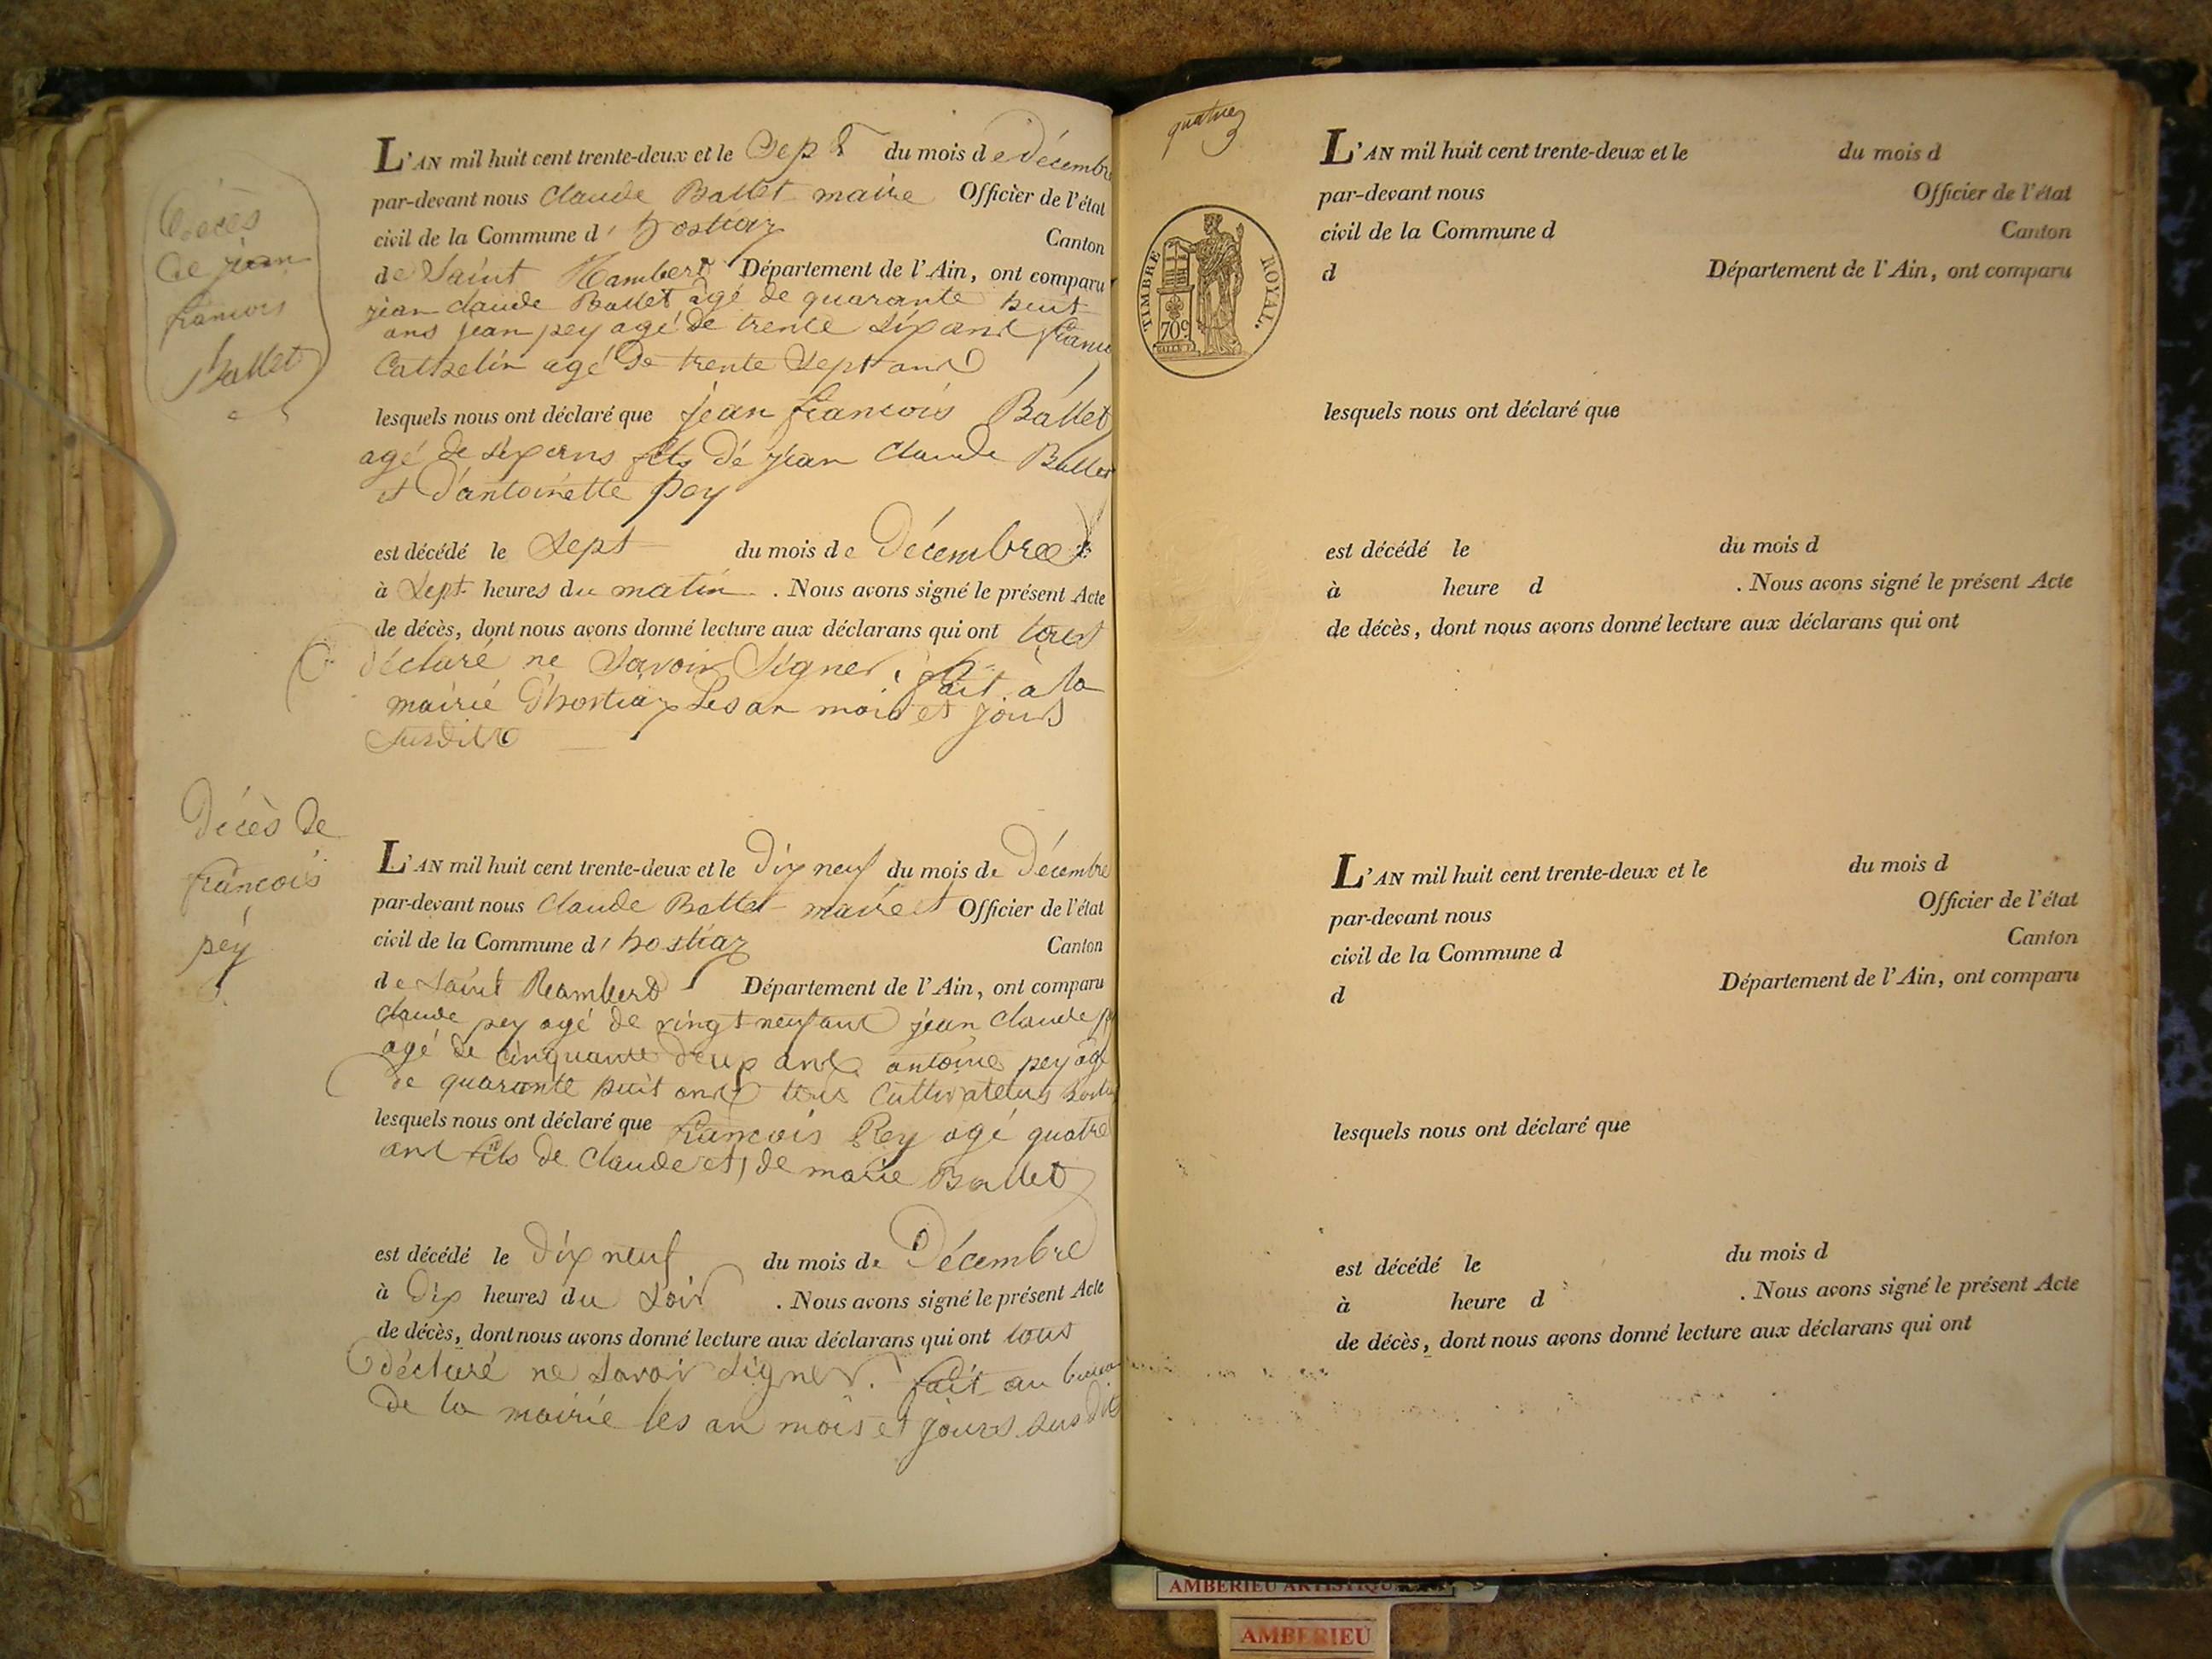 Décès
de jean
francois
Ballet
L'AN mil huit cent trente-deux et le Sept du mois de décembre
par-devant nous Claude Ballet maire Officier de l'état
civil de la Commune d' hostiaz Canton
de Saint Rambert Département de l'Ain, ont comparu
jean claude Ballet agé de quarante huit
ans jean pey agé de trente six ans
Cathelin agé de trente Sept ans
lesquels nous ont déclaré que jean francois Ballet
agé de six ans fils de jean Claude Ballet
et d'antoinette pey
est décédé le Sept du mois de Décembre
à Sept heures du matin . Nous avons signé le présent Acte
de décès, dont nous avons donné lecture aux déclarans qui ont tous
déclaré ne Savoir Signer, fait à la
mairie d'hostiaz Les an mois et jours
Susdits
Décès de
francois
pey
L'AN mil huit cent trente-deux et le Dix neuf du mois de Décembre
par-devant nous Claude Ballet maire Officier de l'état
civil de la Commune d' hostiaz Canton
de Saint Rambert Département de l'Ain, ont comparu
Claude pey agé de vingt neuf ans jean Claude
agé de cinquante deux ans antoine pey agé
de quarante huit ans tous Cultivateurs
lesquels nous ont déclaré que francois Pey agé quatre
ans fils de Claude et de marie Ballet
est décédé le Dix neuf du mois de Décembre
à Dix heures du Soir . Nous avons signé le présent Acte
de décès, dont nous avons donné lecture aux déclarans qui ont tous
déclaré ne Savoir Signer. fait au bureau
de la mairie les an mois et jours Susdits
TIMBRE ROYAL.
709
L'AN mil huit cent trente-deux et le du mois d
par-devant nous Officier de l'état
civil de la Commune d Canton
d Département de l'Ain, ont comparu
lesquels nous ont déclaré que
est décédé le du mois d
à heure d . Nous avons signé le présent Acte
de décès, dont nous avons donné lecture aux déclarans qui ont
L'AN mil huit cent trente-deux et le du mois d
par-devant nous Officier de l'état
civil de la Commune d Canton
d Département de l'Ain, ont comparu
lesquels nous ont déclaré que
est décédé le du mois d
à heure d . Nous avons signé le présent Acte
de décès, dont nous avons donné lecture aux déclarans qui ont
AMBERIEU
AMBERIEU